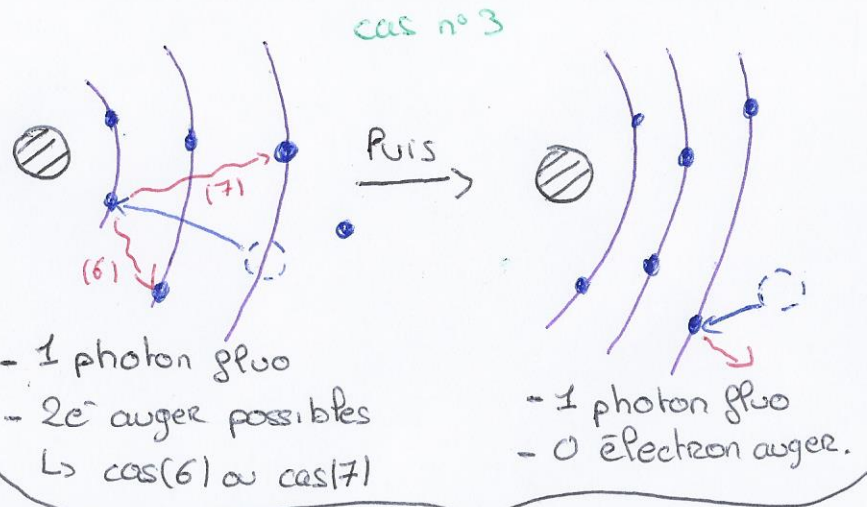 cas n° 3
Puis
(7)
(6)
- 1 photon fluo
- 2e⁻ auger possibles
↳ cas(6) ou cas(7)
- 1 photon fluo
- 0 électron auger.